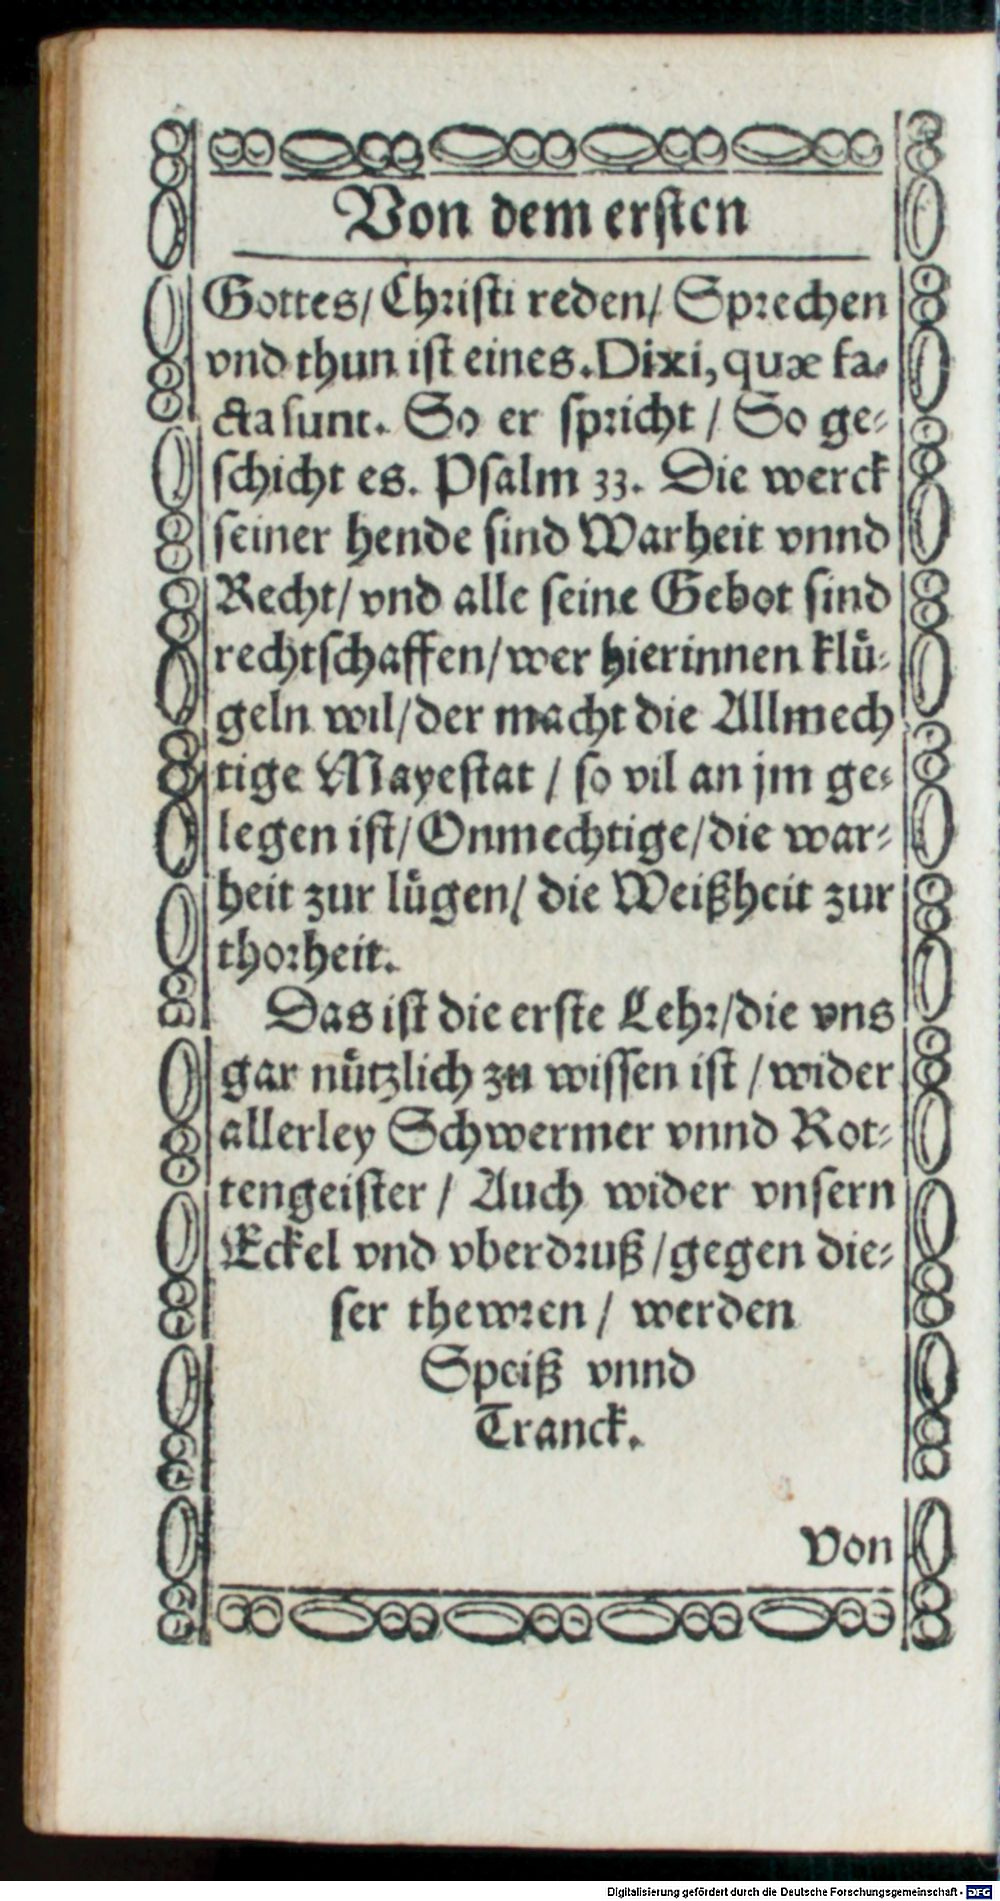 Von dem ersten
Gottes/ Christi reden/ Sprechen
vnd thun ist eines. Dixi, quæ fa-
cta sunt. So er spricht / So ge-
schicht es. Psalm 33. Die werck
seiner hende sind Warheit vnnd
Recht/ vnd alle seine Gebot sind
rechtschaffen/ wer hierinnen kluͤ-
geln wil/ der macht die Allmech
tige Mayestat / so vil an jm ge-
legen ist/ Onmechtige/ die war-
heit zur luͤgen/ die Weißheit zur
thorheit.
Das ist die erste Lehr/ die vns
gar nuͤtzlich zu wissen ist / wider
allerley Schwermer vnnd Rot-
tengeister / Auch wider vnsern
Eckel vnd vberdruß / gegen die-
ser thewren / werden
Speiß vnnd
Tranck.
Von
Digitalisierung gefördert durch die Deutsche Forschungsgemeinschaft - DFG